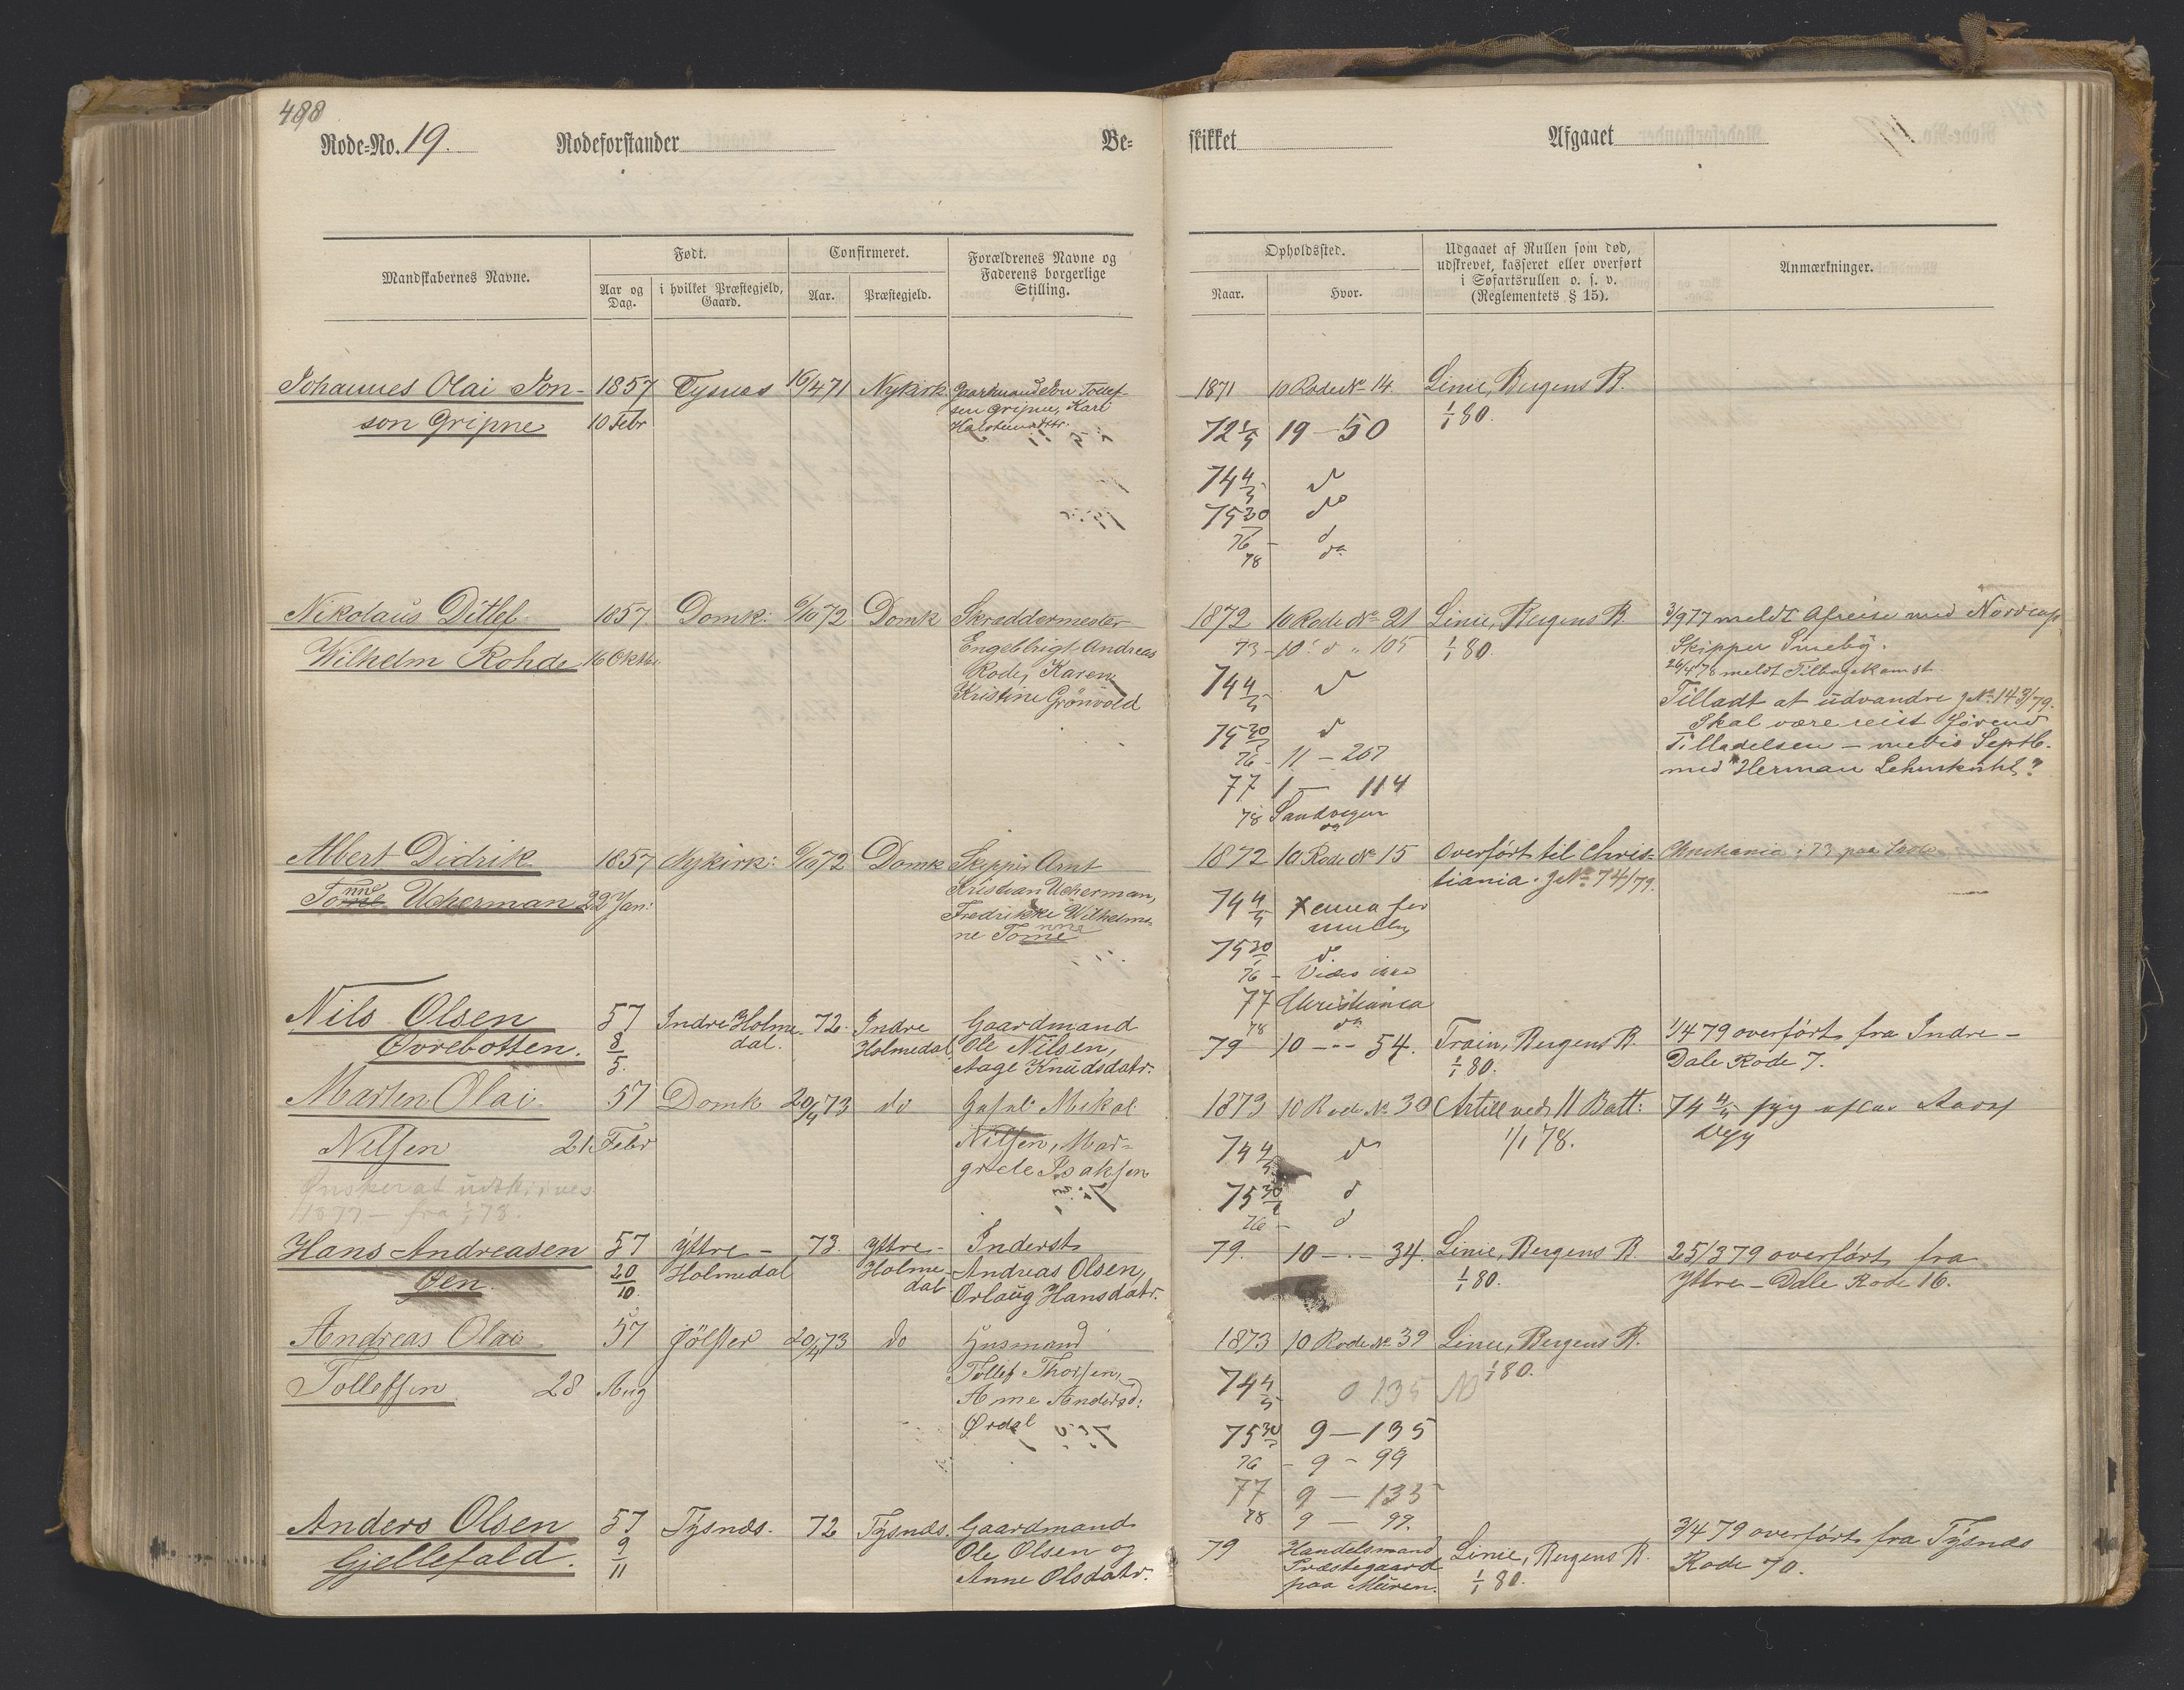 488
Rode=No. 19. Rodeforstander Be=
skikket Afgaaet
Mandskabernes Navne.
Født.
Aar og Dag.
i hvilket Præstegjeld, Gaard.
Confirmeret.
Aar.
Præstegjeld.
Forældrenes Navne og
Faderens borgerlige
Stilling.
Opholdssted.
Naar.
Hvor.
Udgaaet af Rullen som død,
udskrevet, kasseret eller overført
i Søfartsrullen o. s. v.
(Reglementets § 15).
Anmærkninger.
Johannes Olai Jon- 1857 Tysnes 16/4 71 Nykirk. 1871 10 Rode No 14. Linie, Bergens B.
son Gripne 10 Febr 72 19 - 50 1/1 80.
74 4/5 do
75 30 do
76 - d
78 do
Nikolaus Ditlef 1857 Domk: 6/10 72 Domk Skræddermester 1872 10 Rode No 21 Linie, Bergens B. 3/9 77 meldt Afreise med Nordcap
Wilhelm Rohde 16 Oktbr. Engelbrigt Andreas 73 - 10 d " 105 1/1 80. Skipper
Rode, Karen 74 4/5 d 26/4 78 meldt Tilbagekomst.
Kristine Grønvold 75 30 d Tilladt at udvandre JNo 143/79.
76 - 11 - 267 Skal være reist førend
77 1 - 114 Tilladelsen - medio Septb.
78 Sandvigen do med "Herman Lehmkuhl"?
Albert Didrik 1857 Nykirk: 6/10 72 Domk Skipper Arnt 1872 10 Rode No 15 Overført til Chris- Christiania i 73 paa
Tonne Ucherman 22 Jan: Kristian Ucherman, tiania. JNo 74/79.
Fredrikke Wilhelmi- 74 4/5
ne Tonne 75 30 d.
76 - Vides ikke
77 Christiania
78 do
Nils Olsen 57 Indre Holme- 72. Indre Gaardmand 79 10 --- 54. Train, Bergens B. 1/4 79 overført fra Indre -
Øvrebotten. 8/5. dal. Holmedal Ole Nilsen, 1/1 80. Dale Rode 7.
Aage Knudsdatr.
Marten Olai 57 Domk 20/4 73 do Mikal 1873 10 Rode No 30 Artill ved 11 Batt: 74 4/5
Nilsen 21 Febr Nilsen, Mar- 74 4/5 d 1/1 78.
grete Isaksen 75 30 d
Ønsker at udskrives 76 - d
1877 - fra 1/1 78.
Hans Andreasen 57 Yttre - 73. Yttre- Inderst 79. 10 --- 34. Linie, Bergens B. 25/3 79 overført fra
Øen. 20/10. Holmedal Holme- dal Andreas Olsen, 1/1 80. Yttre - Dale Rode 16.
Orlaug Hansdatr.
Andreas Olai 57 Jölster 20/4 73 do Husmand 1873 10 Rode No 39 Linie, Bergens B.
Tolleffsen 28 Aug Tollef Thorsen, 74 4/5 0 135 1/1 80.
Anne Andersd: 75 30 9 - 135
Ørdal 76 - 9 - 99
77 9 - 135
78 9 - 99.
Anders Olsen 57 Tysnæs. 72 Tysnæs. Gaardmand 79 Handelsmand Linie, Bergens B. 3/4 79 overført fra Tysnæs
Gjellefald. 9/11 Ole Olsen og Præstegaard 1/1 80. Rode 70.
Anne Olsdatr. paa Muren.